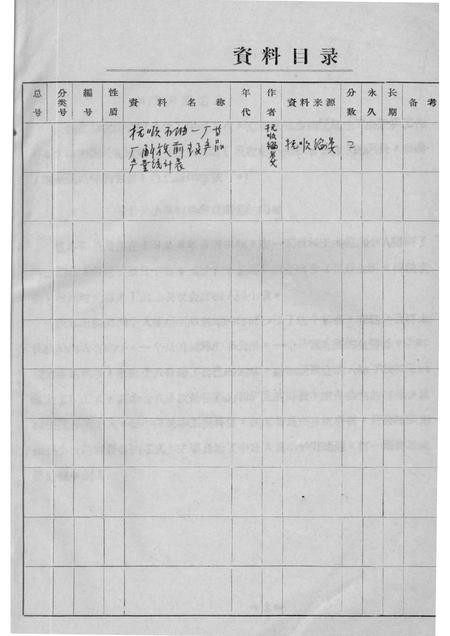 資料目录
总号 分类号 編号 性質 資料名称 年代 作者 資料来源 分数 永久 长期 备考
抚顺石油一厂与 抚顺编委 抚顺编委 2
厂解放前主要产品
产量统计表